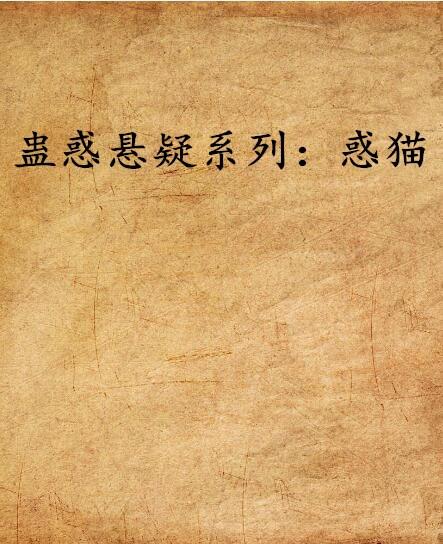 蛊惑悬疑系列：惑猫